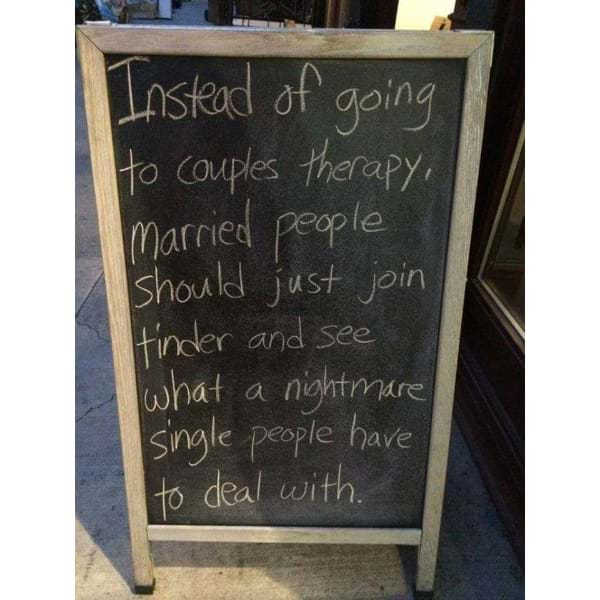 Instead of going
to couples therapy,
married people
should just join
tinder and see
what a nightmare
single people have
to deal with.